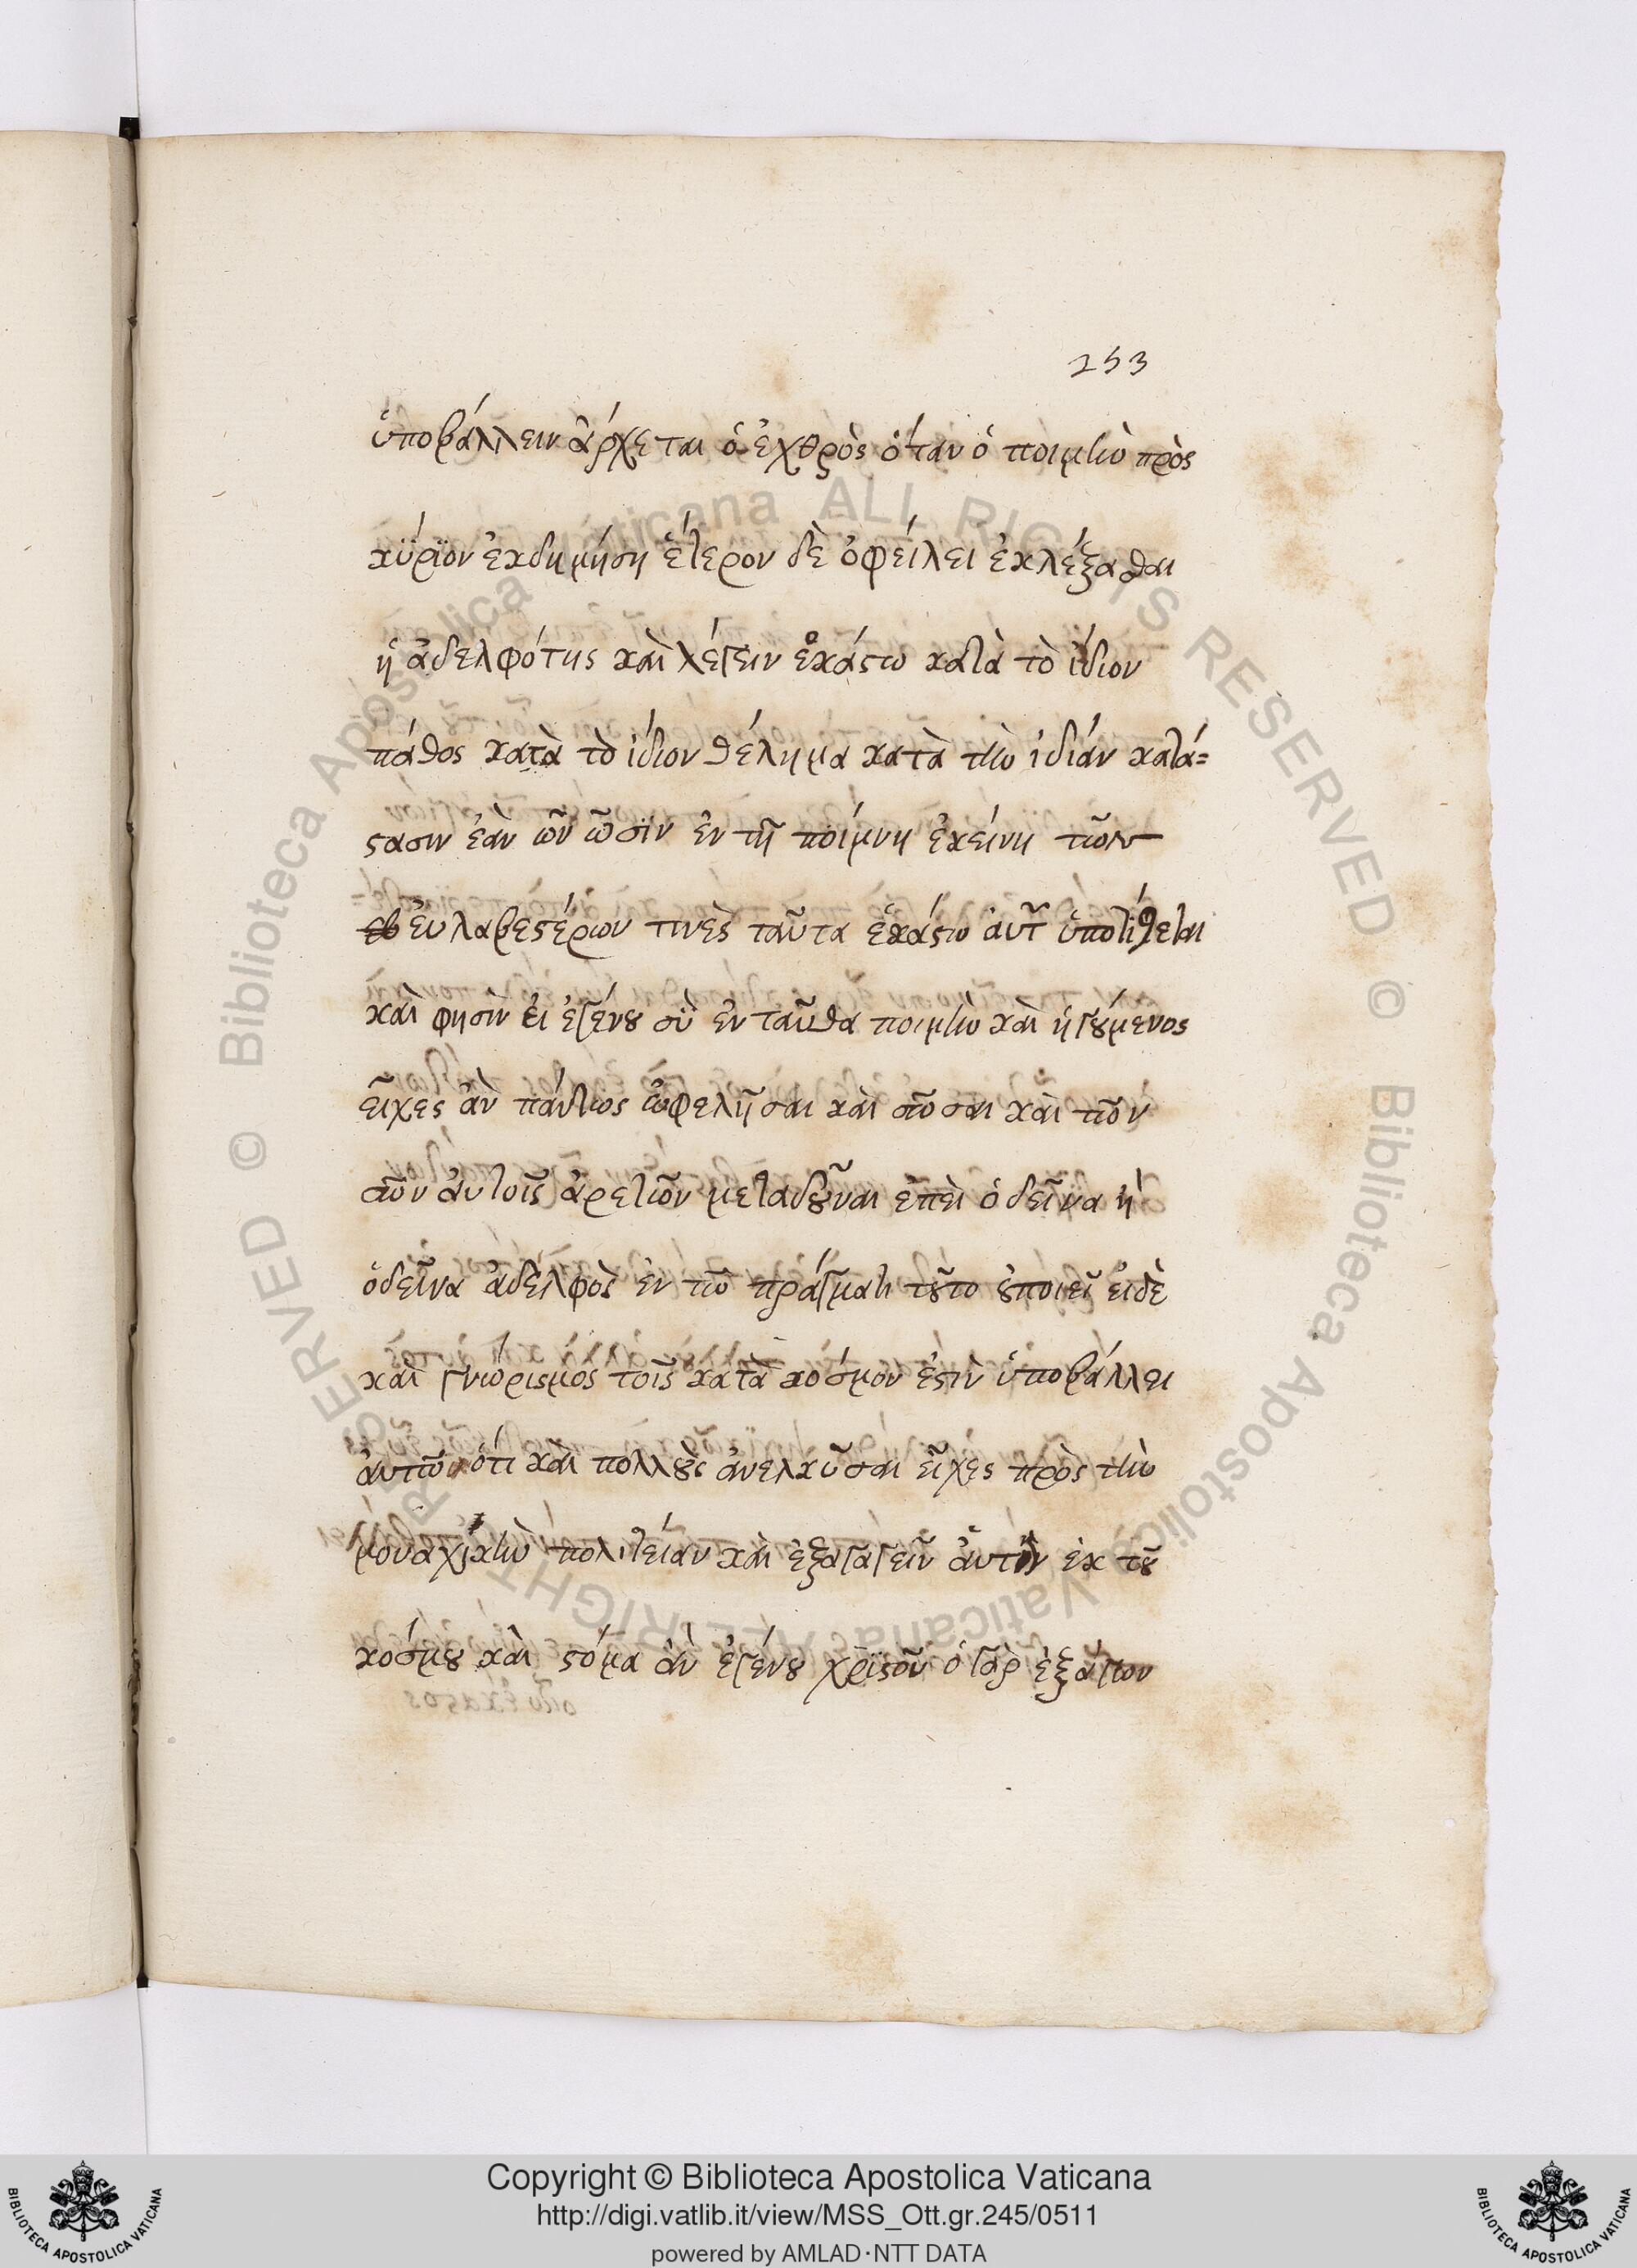 253
ὑποβάλλειν ἄρχεται ὁ ἐχθρὸς ὅταν ὁ ποιμὴν πρὸς
κϋρϊον ἐκδημήση ἕτερον δὲ ὀφείλει ἐκλέξασθαι
ἡ ἀδελφότης καὶ λέγειν ἑκάστω κατὰ τὸ ἴδιον
πάθος κατὰ τὸ ἴδιον θέλημα κατὰ τὴν ἰδιάν κατά=
στασιν ἐὰν οὖν ὦσϊν ἐν τῆ ποίμνη ἐκείνη τῶν
ἐυλαβεστέρων τινὲς ταῦτα ἑκάστω ἀυτῶν ὑποτίθεται
καὶ φησὶν ἐι ἐγένου σϋ ἐνταῦθα ποιμὴν καὶ ἡγούμενος
εἶχες ἂν πάντως ὠφελῆσαι καὶ σῶσαι καὶ τῶν
σῶν ἀυτοῖς ἀρετῶν μεταδοῦναι ἐπεὶ ὁ δεῖνα ἢ
ὁ δεῖνα ἀδελφὸς ἐν τῶ πράγματι τοῦτο ἐποιεῖ ἐιδὲ
καὶ γνώρισμος τοῖς κατὰ κόσμον ἐστὶν ὑποβάλλει
ἀυτῶ ὅτι καὶ πολλοὺς ἀνελκῦσαι εἶχες πρὸς τὴν
μοναχικὴν πολιτείαν καὶ ἐξαγαγεῖν ἀυτοὺς ἐκ τοῦ
κόσμου καὶ στόμα ἂν ἐγένου χρϊστοῦ ὁ γὰρ ἐξάγων
Copyright © Biblioteca Apostolica Vaticana
http://digi.vatlib.it/view/MSS_Ott.gr.245/0511
powered by AMLAD·NTT DATA
BIBLIOTECA APOSTOLICA VATICANA
BIBLIOTECA APOSTOLICA VATICANA
© Biblioteca Apostolica Vaticana ALL RIGHTS RESERVED
© Biblioteca Apostolica Vaticana ALL RIGHTS RESERVED